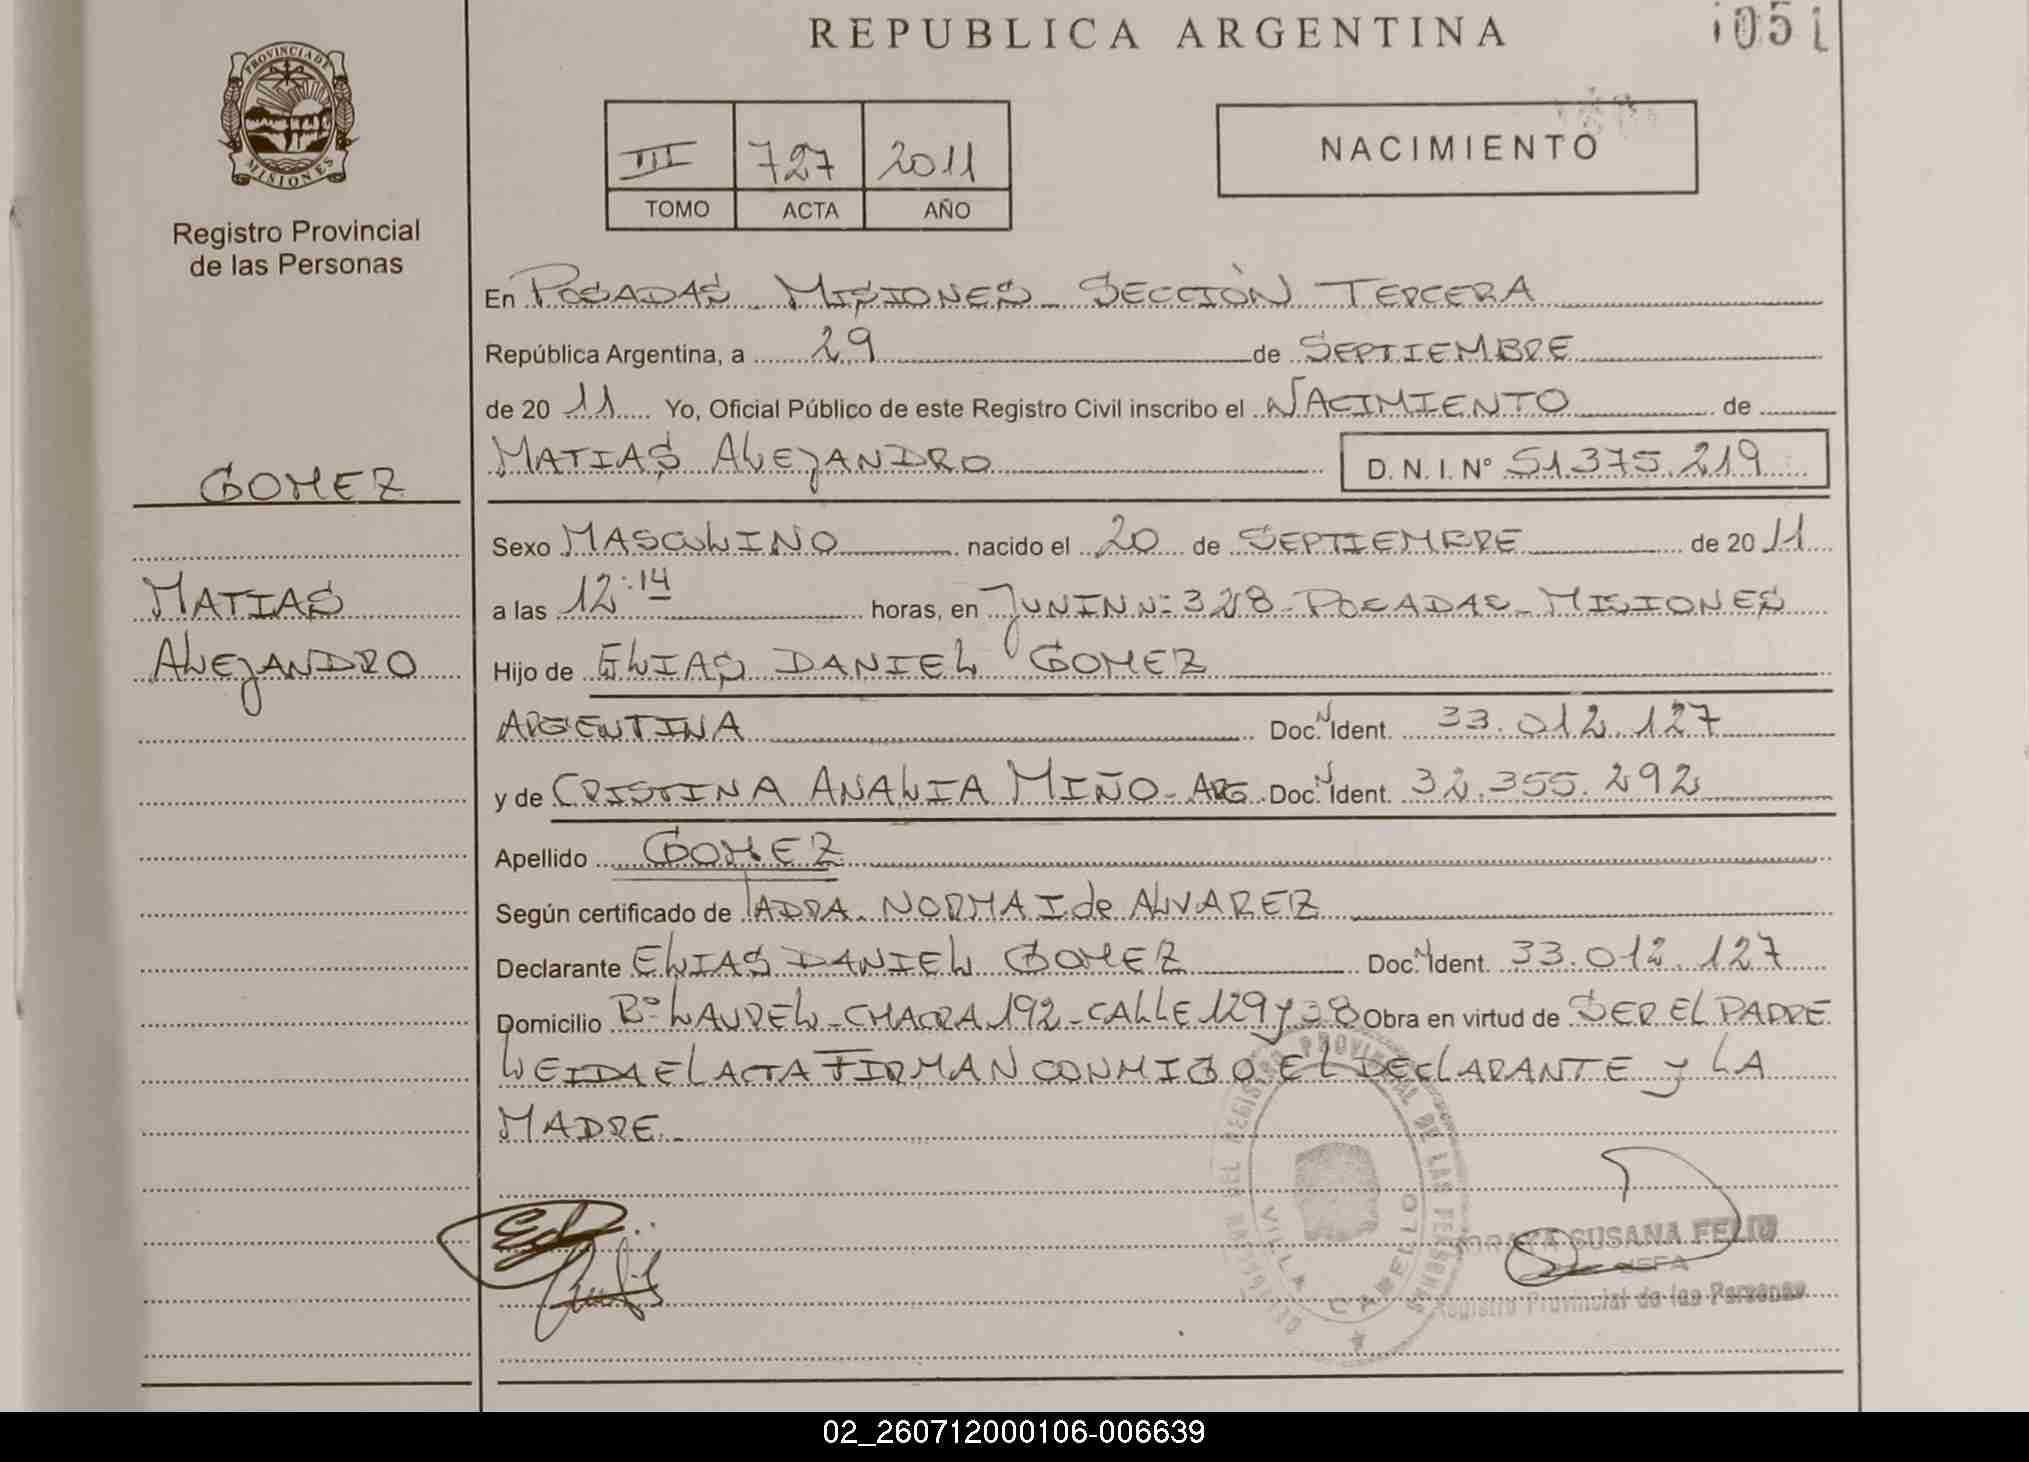 REPUBLICA ARGENTINA
1051
PROVINCIA DE
MISIONES
Registro Provincial
de las Personas
III 727 2011
TOMO ACTA AÑO
NACIMIENTO
En POSADAS - MISIONES - SECCIÒN TERCERA
República Argentina, a 29 de SEPTIEMBRE
de 2011 Yo, Oficial Público de este Registro Civil inscribo el NACIMIENTO de
MATIAS ALEJANDRO D.N.I. Nº 51.375.219
GOMEZ
MATIAS
ALEJANDRO
Sexo MASCULINO nacido el 20 de SEPTIEMBRE de 2011
a las 12:14 horas, en JUNIN Nº 328 - POSADAS - MISIONES
Hijo de ELIAS DANIEL GOMEZ
ARGENTINA Doc. N. Ident. 33.012.127
y de CRISTINA ANALIA MIÑO - ARG. Doc. N. Ident. 32.355.292
Apellido GOMEZ
Según certificado de NORMA I. de ALVAREZ
Declarante ELIAS DANIEL GOMEZ Doc. N. Ident. 33.012.127
Domicilio Bº LAUREL - CHACRA 192 - CALLE 129 y 38 Obra en virtud de SER EL PADRE
LEIDA EL ACTA FIRMAN CONMIGO EL DECLARANTE y LA
MADRE.-
DEL REGISTRO PROVINCIAL DE LAS PERSONAS
VILLA CABELLO
SUSANA FELIU
JEFA
Registro Provincial de las Personas
02_260712000106-006639